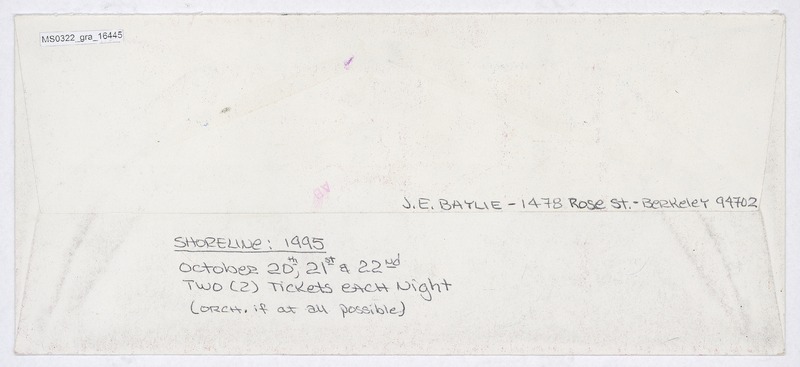 MS0322_gra_16445
AB
J.E. BAYLIE - 1478 Rose St. - Berkeley 94702
SHORELINE: 1995
October 20th, 21st & 22nd
TWO (2) Tickets EACH Night
(ORCH. if at all possible)